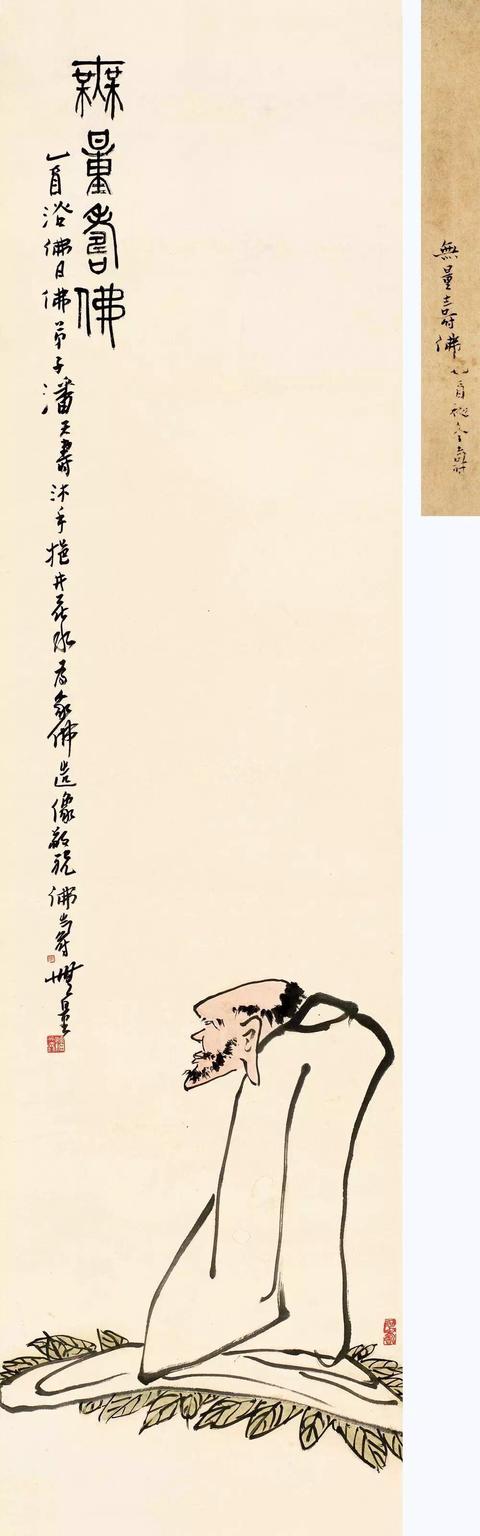 無量壽佛
乙酉浴佛日佛弟子潘天壽沐手挹井花水為我佛造像敬祝佛壽無量
無量壽佛
乙酉 冬壽